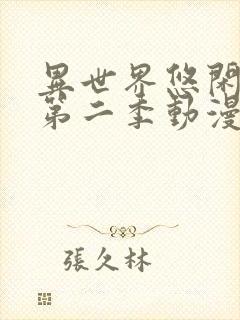 異世界悠閑
第二季動漫
張久林